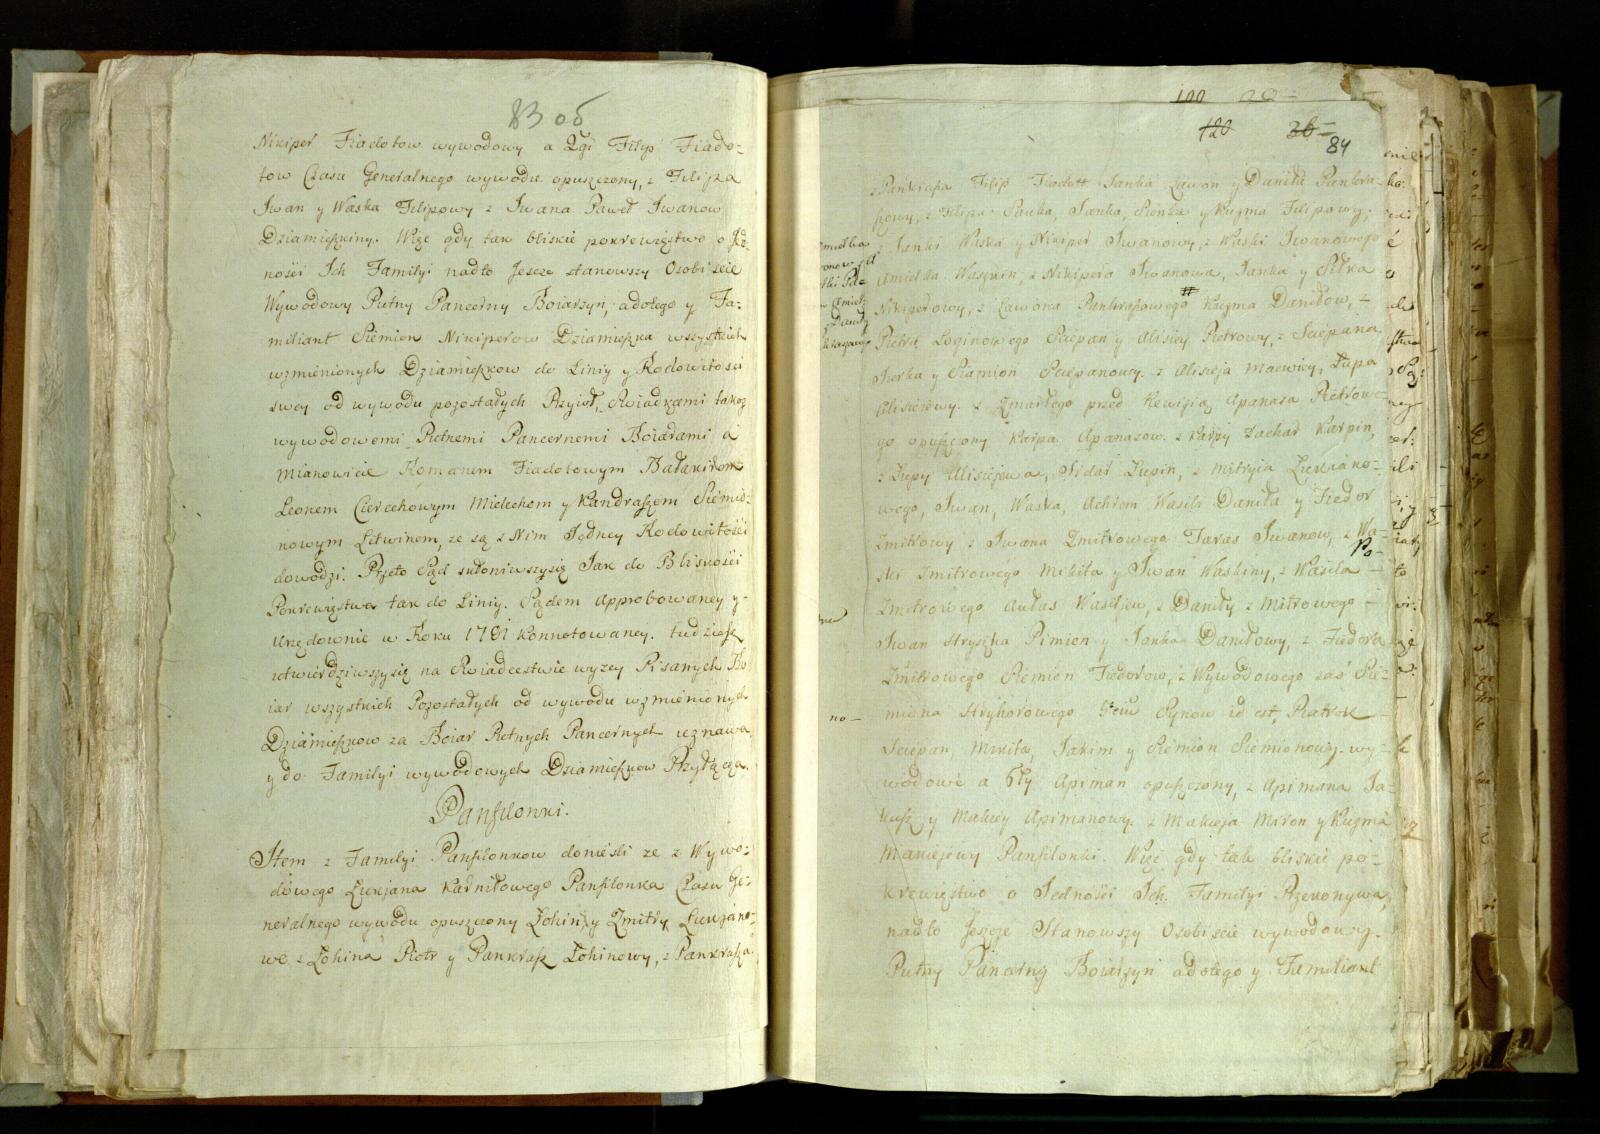 83 об
Nikiper Fiadotow wywodowy a 2gi Filip Fiado-
tow Czasu Generalnego wywodu opuszczony, z Filipa
Iwan y Waska Filipowy z Iwana Paweł Iwanow
Dziamieszkiny. Więc gdy tak bliskie pokrewięstwo o Jed-
ności Ich Familyi nadto Jescze stanowszy Osobiscie
Wywodowy Putny Pancerny Boiarzyn, adołego y Fa-
miliant Siemion Nikiperow Dziamieszka wszystkich
wzmienionych Dziamieszkow do Liniy y Rodowitości
swey od wywodu pozostałych Przyioł, Swiadkami takoż
wywodowemi Putnemi Pancernemi Boiarami a
mianowicie Romanem Fiadotowym
Leonem Cierechowym Mielechom y Kandraszem Siemio-
nowym Litwinem, ze są z Nim Jedney Rodowitości
dowodzi. Przeto Sąd skłoniwszysię Jak do Bliskości
Pokrewięstwa tak do Liniy. Sądem Approbowaney y
Urzędownie w Roku 1781 konnotowaney. tudziesz
utwierdziwszysię na Swiadcestwie wyzey Pisanych Bo
iar wszystkich Pozostałych od wywodu wzmienionych
Dziamieszkow za Boiar Putnych Pancernych uznawa
y do Familyi wywodowych Dziamieszkow Przyłącza.
Panfilonki.
Item z Familyi Panfilonkow donieśli ze z Wywo-
dowego Łukjana Karniłowego Panfilonka Czasu Ge-
neralnego wywodu opuszczony Łohin y Zmitry Łukjano-
we z Łohina Piotr y Pankrasz Łohinowy, z Pankrasza
100
120 36
84
z Pankrasza Filip Fiadott Janka Lawon y Daniła Pankra-
szowy, z Filipa Sauka, Janka, Sienka y Kuzma Filipowy,
z Janki Waska y Nikiper Iwanowy, z Waski Iwanowego
Amielka Waskin, z Nikipera Iwanowa, Janka y Siłka
Nikiperowy, z Lawona Pankraszowego # Kuzma Daniłow, z
Pietra Loginowego Sciepan y Alisiey Pietrowy, z Sciepana
Jurka y Siamion Sciepanowy. z Alisieja Macwiey, Łupa
Alisieiewy. z Zmarłego przed Rewizią Apanasa Pietrowe-
go opuszczony Karpa Apanasow. z Karpy Zachar Karpin,
z Łupy Alisiejewa, Sidar Łupin, z Mitryia Łukiano-
wego, Iwan, Waska, Achrem Wasili Daniła y Fiedor
Zmitrowy z Iwana Zmitrowego Taras Iwanow, z Wa-
ski Zmitrowego Mikita y Iwan Waskiny, z Wasila
Zmitrowego Aułas Wasiljew, z Daniły Zmitrowego
Iwan Hryszka Pimien y Janka Daniłowy, z Fiedora
Zmitrowego Siemion Fiedorow, z Wywodowego zaś Sie-
miona Hryhorowego 5ciu Synow id est, Piatrok
Sciepan, Mikita, Jakim y Siemion Siemionowy. wy-
wodowe a 6ty Apiman opuszczony, z Apimana Ja-
kusz y Makiey Apimanowy. z Makieja Miron y Kuzma
Makiejewy Panfilonki. Więc gdy tak bliskie po-
krewięstwo o Jedności Ich Familyi Przekonywa,
nadto Jeszcze Stanowszy Osobiscie wywodowy.
Putny Pancerny Boiarzyn adołego y Familiant
no-